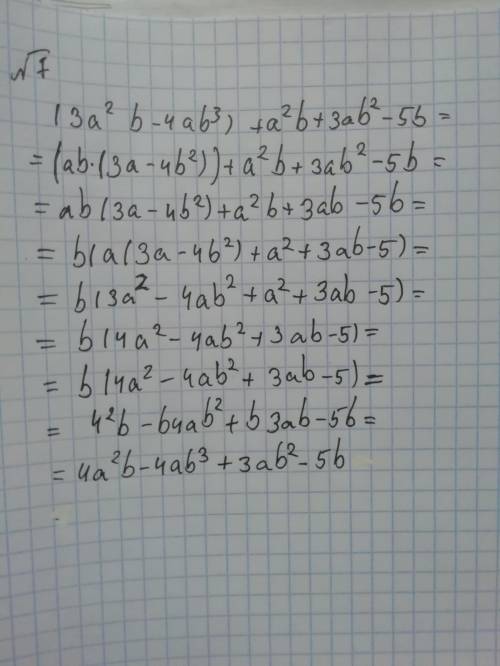 √7
(3a² b - 4ab³) + a²b + 3ab² - 5b =
= (ab·(3a - 4b²)) + a²b + 3ab² - 5b =
= ab(3a - 4b²) + a²b + 3ab - 5b =
= b(a(3a - 4b²) + a² + 3ab - 5) =
= b(3a² - 4ab² + a² + 3ab - 5) =
= b(4a² - 4ab² + 3ab - 5) =
= b(4a² - 4ab² + 3ab - 5) =
= 4²b - b4ab² + b3ab - 5b =
= 4a²b - 4ab³ + 3ab² - 5b